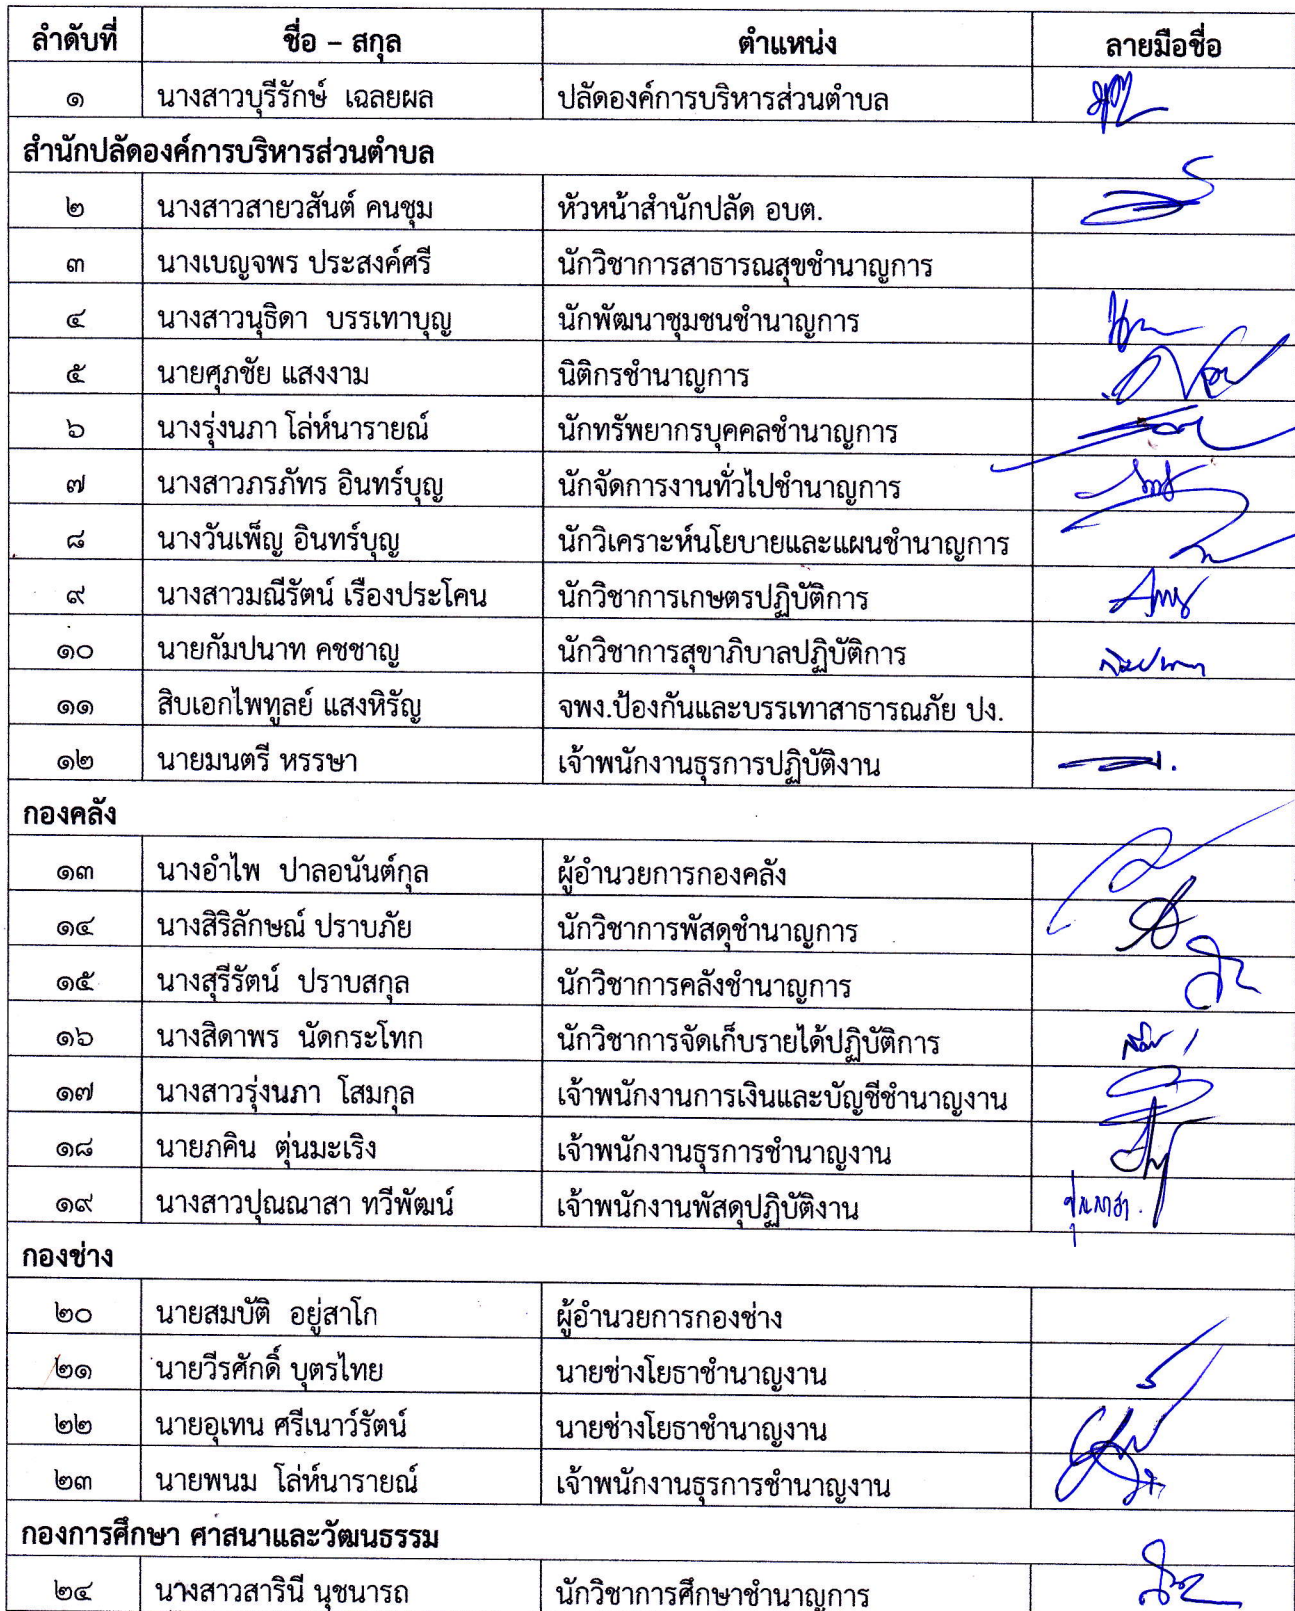 ลำดับที่ ชื่อ – สกุล ตำแหน่ง ลายมือชื่อ
๑ นางสาวบุรีรักษ์ เฉลยผล ปลัดองค์การบริหารส่วนตำบล
สำนักปลัดองค์การบริหารส่วนตำบล
๒ นางสาวสายวสันต์ คนชุม หัวหน้าสำนักปลัด อบต.
๓ นางเบญจพร ประสงค์ศรี นักวิชาการสาธารณสุขชำนาญการ
๔ นางสาวนุธิดา บรรเทาบุญ นักพัฒนาชุมชนชำนาญการ
๕ นายศุภชัย แสงงาม นิติกรชำนาญการ
๖ นางรุ่งนภา โล่ห์นารายณ์ นักทรัพยากรบุคคลชำนาญการ
๗ นางสาวภรภัทร อินทร์บุญ นักจัดการงานทั่วไปชำนาญการ
๘ นางวันเพ็ญ อินทร์บุญ นักวิเคราะห์นโยบายและแผนชำนาญการ
๙ นางสาวมณีรัตน์ เรืองประโคน นักวิชาการเกษตรปฏิบัติการ
๑๐ นายกัมปนาท คชชาญ นักวิชาการสุขาภิบาลปฏิบัติการ
๑๑ สิบเอกไพทูลย์ แสงหิรัญ จพง.ป้องกันและบรรเทาสาธารณภัย ปง.
๑๒ นายมนตรี หรรษา เจ้าพนักงานธุรการปฏิบัติงาน
กองคลัง
๑๓ นางอำไพ ปาลอนันต์กุล ผู้อำนวยการกองคลัง
๑๔ นางสิริลักษณ์ ปราบภัย นักวิชาการพัสดุชำนาญการ
๑๕ นางสุรีรัตน์ ปราบสกุล นักวิชาการคลังชำนาญการ
๑๖ นางสิดาพร นัดกระโทก นักวิชาการจัดเก็บรายได้ปฏิบัติการ
๑๗ นางสาวรุ่งนภา โสมกุล เจ้าพนักงานการเงินและบัญชีชำนาญงาน
๑๘ นายภคิน ตุ่นมะเริง เจ้าพนักงานธุรการชำนาญงาน
๑๙ นางสาวปุณณาสา ทวีพัฒน์ เจ้าพนักงานพัสดุปฏิบัติงาน
กองช่าง
๒๐ นายสมบัติ อยู่สาโก ผู้อำนวยการกองช่าง
๒๑ นายวีรศักดิ์ บุตรไทย นายช่างโยธาชำนาญงาน
๒๒ นายอุเทน ศรีเนาว์รัตน์ นายช่างโยธาชำนาญงาน
๒๓ นายพนม โล่ห์นารายณ์ เจ้าพนักงานธุรการชำนาญงาน
กองการศึกษา ศาสนาและวัฒนธรรม
๒๔ นางสาวสารินี นุชนารถ นักวิชาการศึกษาชำนาญการ